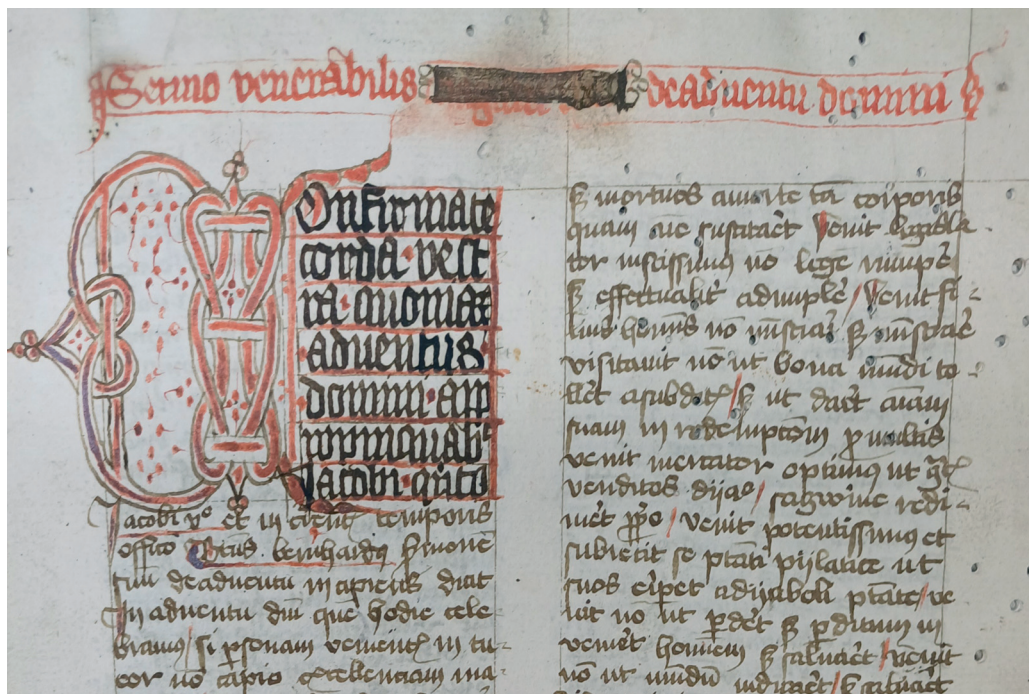 Sermo venerabilis de adventu domini
Onfirmate
corda vest
ra quoniam
adventus
domini app
ropinquabit
Jacobi quinto
Jacobi vo et in eveni temporis
officio Btus bernhardus sermone
suo de adventu incipiens dicit
In adventu dni que hodie cele-
bramus / si psonam venientis in tu-
eor no capio excellenciam ma-
s mortuos a morte tam corporis
quam aie suscitaret Venit legisla-
tor iustissimus no lege rumpe
s effectualiter adimplere / Venit fi-
lius hominis no ministrari s ministrare
visitavit no ut bona mundi to-
lleret a subditis / s ut daret animam
suam in redemptom pro multis
venit mercator optimus ut
venditos dyabolo / sagwine redi-
meret pprio / venit potentissimus et
subiecit se ptati pylatice ut
suos eriperet a dyaboli ptate / ve
nit no ut perderet s perditum in
veniret hominem s salvaret / venit
no ut mundum iudicaret / s salvaret